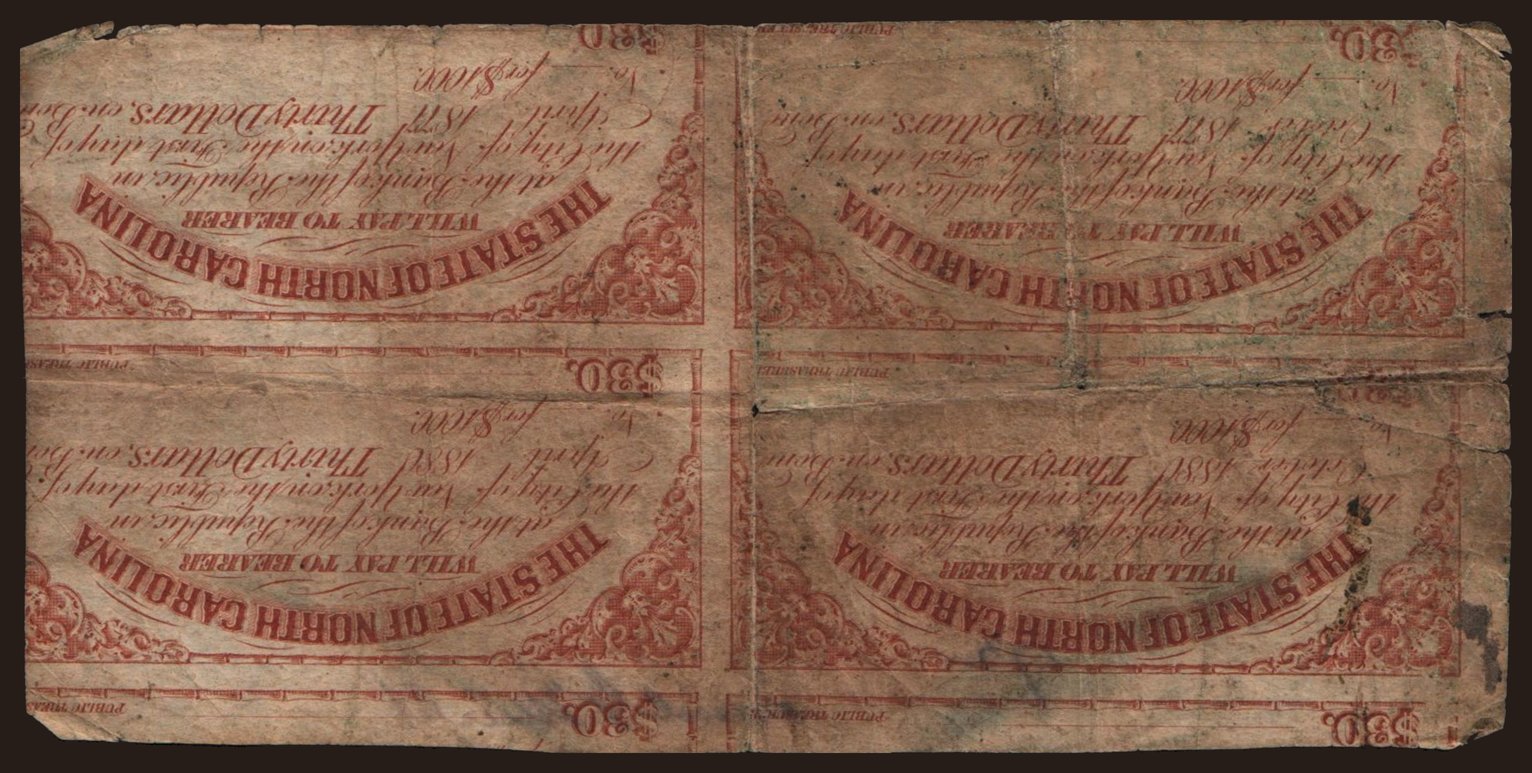 $30. PUBLIC TREASURER
$30. PUBLIC TREAS
THE STATE OF NORTH CAROLINA
WILL PAY TO BEARER
at the Bank of the Republic, in
the City of New York on the First day of
October 1880 Thirty Dollars, on Bon
No. for $1000.
$30. PUBLIC TREASURER
THE STATE OF NORTH CAROLINA
WILL PAY TO BEARER
at the Bank of the Republic, in
the City of New York on the First day of
April 1880 Thirty Dollars, on Bon
No. for $1000.
$30. PUBLIC TREAS
THE STATE OF NORTH CAROLINA
WILL PAY TO BEARER
at the Bank of the Republic, in
the City of New York on the First day of
October 1877 Thirty Dollars, on Bon
No. for $1000.
$30. PUBLIC TREASURER
THE STATE OF NORTH CAROLINA
WILL PAY TO BEARER
at the Bank of the Republic, in
the City of New York on the First day of
April 1877 Thirty Dollars, on Bon
No. for $1000.
$30.